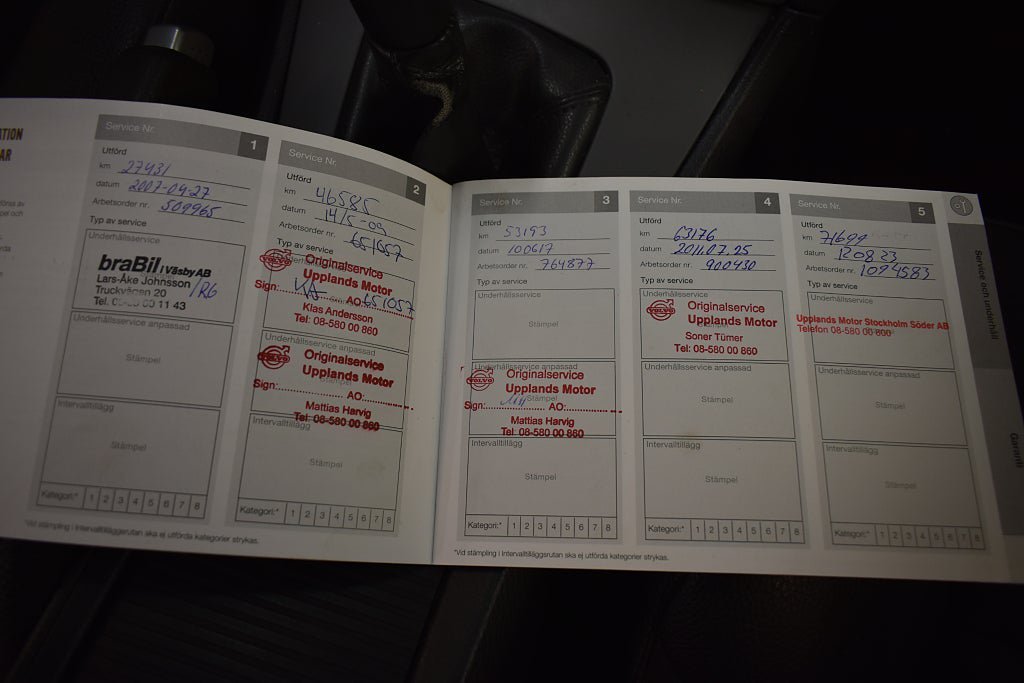 TION
AR
Service Nr. 1
Utförd
km 27431
datum 2007-04-27
Arbetsorder nr. 509965
Typ av service
Underhållsservice
braBil i Väsby AB
Lars-Åke Johnsson /RG
Truckvägen 20
Tel. 00 11 43
Underhållsservice anpassad
Stämpel
Intervalltillägg
Stämpel
Kategori:* 1 2 3 4 5 6 7 8
*Vid stämpling i Intervalltilläggsrutan ska ej utförda kategorier strykas.
Service Nr. 2
Utförd
km 46585
datum 14/5-09
Arbetsorder nr. 651057
Typ av service
Underhållsservice
VOLVO
Originalservice
Upplands Motor
Sign: AO: 651057
Klas Andersson
Tel: 08-580 00 860
Underhållsservice anpassad
VOLVO
Originalservice
Upplands Motor
Stämpel
Sign: AO:
Mattias Harvig
Tel: 08-580 00 860
Intervalltillägg
Stämpel
Kategori:* 1 2 3 4 5 6 7 8
Service Nr. 3
Utförd
km 53153
datum 100617
Arbetsorder nr. 764877
Underhållsservice
Stämpel
Underhållsservice anpassad
VOLVO
Originalservice
Upplands Motor
Stämpel
Sign: AO:
Mattias Harvig
Tel: 08-580 00 860
Intervalltillägg
Stämpel
Kategori:* 1 2 3 4 5 6 7 8
*Vid stämpling i Intervalltilläggsrutan ska ej utförda kategorier strykas.
Service Nr. 4
Utförd
km 63176
datum 2011.07.25
Arbetsorder nr. 900430
Underhållsservice
VOLVO
Originalservice
Upplands Motor
Stämpel
Soner Tümer
Tel: 08-580 00 860
Underhållsservice anpassad
Stämpel
Intervalltillägg
Stämpel
Kategori:* 1 2 3 4 5 6 7 8
Service Nr. 5
Utförd
km 71699
datum 120823
Arbetsorder nr. 1094583
Underhållsservice
Upplands Motor Stockholm Söder AB
Telefon 08-580 00 600
Underhållsservice anpassad
Stämpel
Intervalltillägg
Stämpel
Kategori:* 1 2 3 4 5 6 7 8
Service och underhåll
Garanti